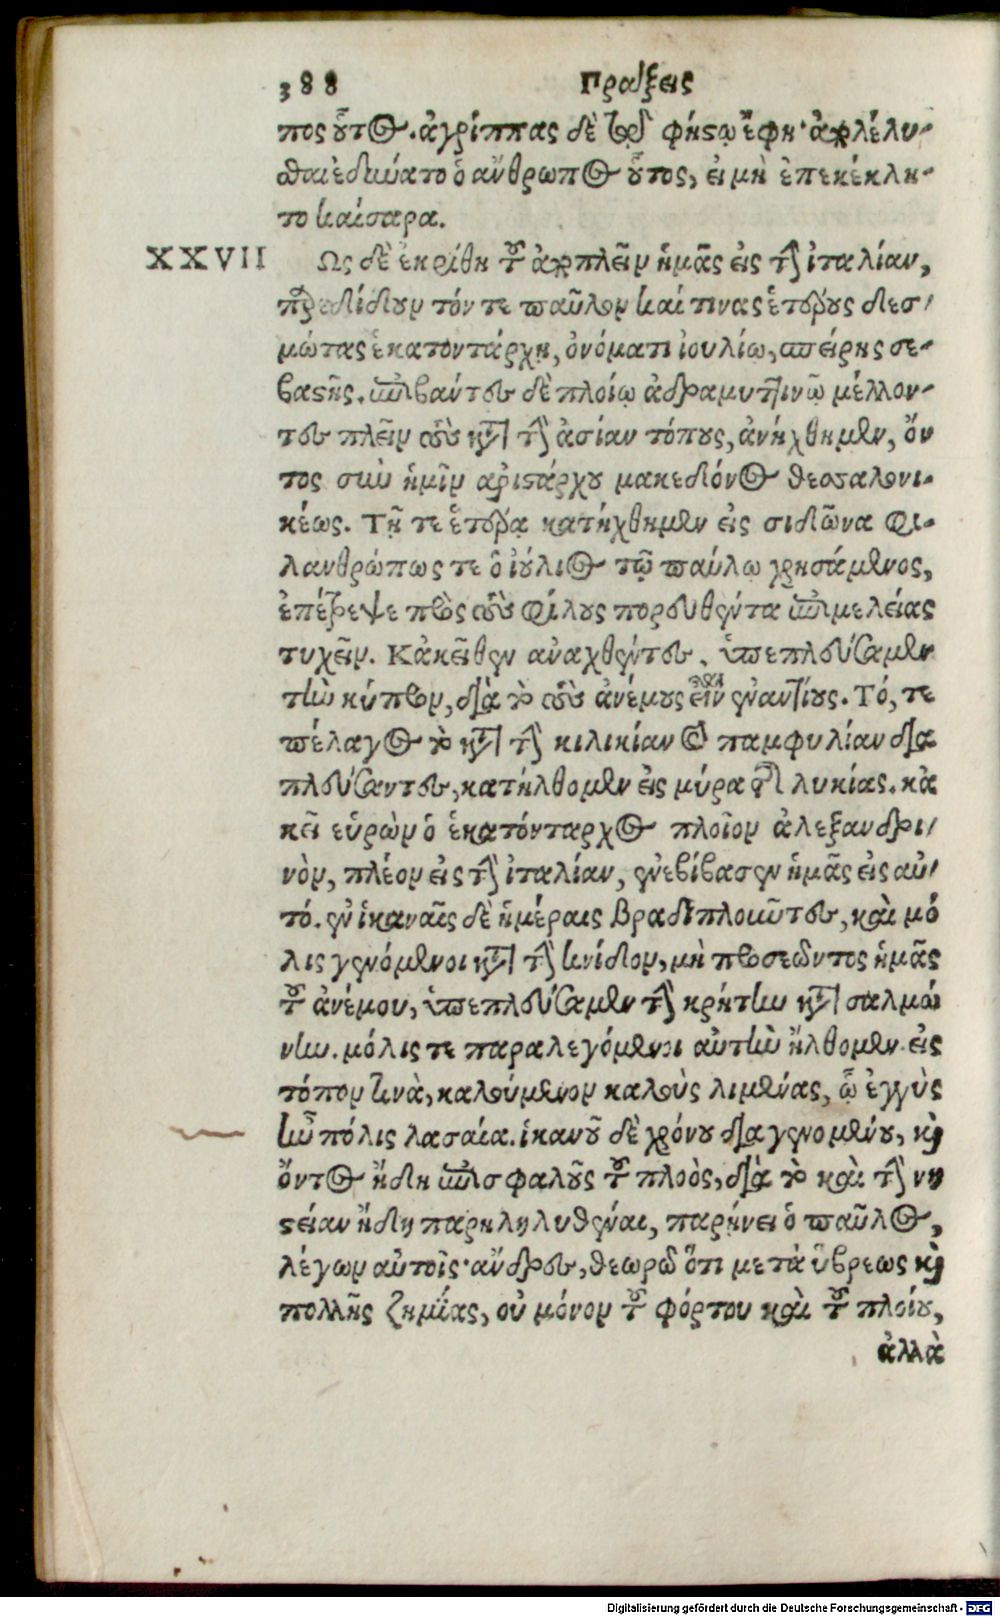 388 Πράξεις
πος οὗτος. ἀγρίππας δὲ τῷ φήστῳ ἔφη· ἀπολελύ-
σθαι ἐδύνατο ὁ ἄνθρωπος οὗτος, εἰ μὴ ἐπεκέκλη-
το καίσαρα.
XXVII Ως δὲ ἐκρίθη τοῦ ἀποπλεῖν ἡμᾶς εἰς τὴν ἰταλίαν,
παρεδίδουν τόν τε παῦλον καί τινας ἑτέρους δεσ/
μώτας ἑκατοντάρχῃ, ὀνόματι ἰουλίῳ, σπείρης σε-
βαστῆς. ἐπιβάντες δὲ πλοίῳ ἀδραμυττινῷ μέλλον-
τες πλεῖν τοὺς κατὰ τὴν ἀσίαν τόπους, ἀνήχθημεν, ὄν
τος σὺν ἡμῖν αριστάρχου μακεδόνος θεσσαλονι-
κέως. Τῇ τε ἑτέρᾳ κατήχθημεν εἰς σιδῶνα φι-
λανθρώπως τε ὁ ἰούλιος τῷ παύλῳ χρησάμενος,
ἐπέτρεψε πρὸς τοὺς φίλους πορευθέντα ἐπιμελείας
τυχεῖν. Κἀκεῖθεν αναχθέντες, ὑπεπλεύσαμεν
τὴν κύπρον, διὰ τὸ τοὺς ἀνέμους εἶναι ἐναντίους. Τό, τε
πέλαγος τὸ κατὰ τὴν κιλικίαν καὶ παμφυλίαν δια
πλεύσαντες, κατήλθομεν εἰς μύρα τῆς λυκίας. κἀ
κεῖ εὑρὼν ὁ ἑκατόνταρχος πλοῖον ἀλεξανδρι/
νὸν, πλέον εἰς τὴν ἰταλίαν, ἐνεβίβασεν ἡμᾶς εἰς αὐ/
τό. ἐν ἱκαναῖς δὲ ἡμέραις βραδυπλοοῦντες, καὶ μό
λις γενόμενοι κατὰ τὴν κνίδον, μὴ προσεῶντος ἡμᾶς
τοῦ ἀνέμου, ὑπεπλεύσαμεν τὴν κρήτην κατὰ σαλμώ
νην. μόλις τε παραλεγόμενοι αὐτὴν ἤλθομεν εἰς
τόπον τινὰ, καλούμενον καλοὺς λιμένας, ᾧ ἐγγὺς
ἦν πόλις λασαία. ἱκανοῦ δὲ χρόνου διαγενομένου, καὶ
ὄντος ἤδη ἐπισφαλοῦς τοῦ πλοὸς, διὰ τὸ καὶ τὴν νη
στείαν ἤδη παρηληλυθέναι, παρῄνει ὁ παῦλος,
λέγων αὐτοῖς· ἄνδρες, θεωρῶ ὅτι μετὰ ὕβρεως καὶ
πολλῆς ζημίας, οὐ μόνον τοῦ φόρτου καὶ τοῦ πλοίου,
ἀλλὰ
Digitalisierung gefördert durch die Deutsche Forschungsgemeinschaft - DFG